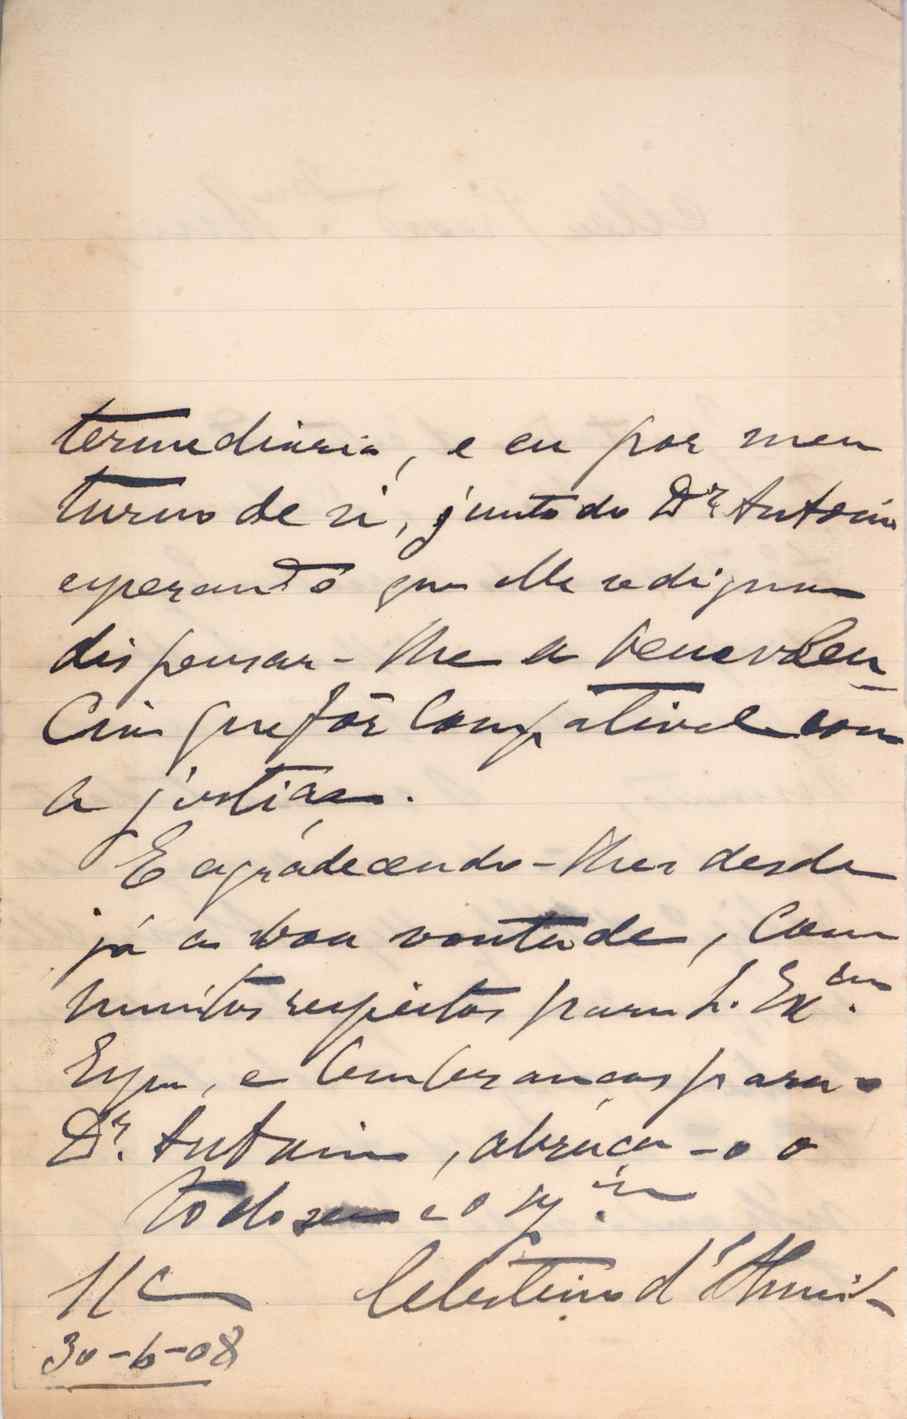 termediaria, e eu por meu
turno de si, junto do Dr Antonio
esperando que elle se digne
dispensar-lhe a benevolen
cia que fôr compativel com
a justiça.
E agradecendo-lhes desde
já a boa vontade, com
muitos respeitos para S. Exma.
Espa, e lembranças para o
Dr. Antonio, abraça-o o
todo seu e o
S/C Celestino d'Almeida
30-6-08